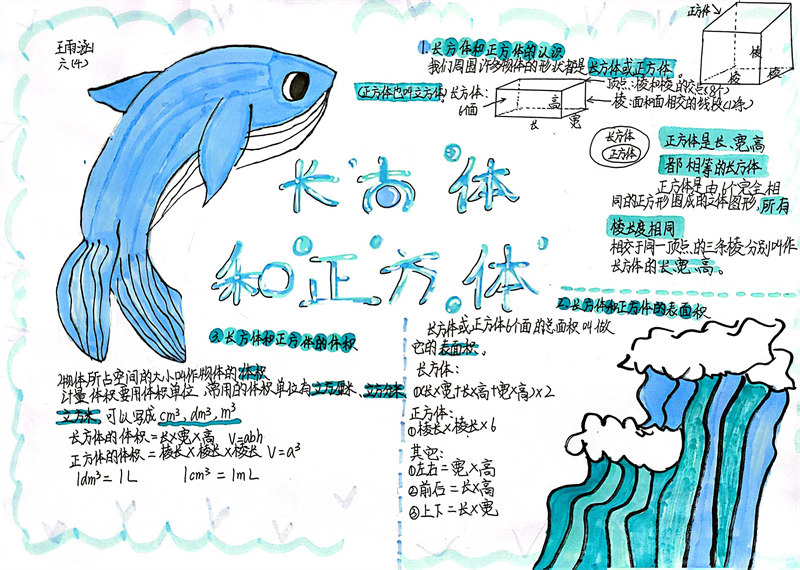 王雨涵
六(4)
长方体
和正方体
1.长方体和正方体的认识
我们周围许多物体的形状都是长方体或正方体。
(正方体也叫立方体)
长方体:
6个面
长
宽
高
顶点:棱和棱的交点(8个)
棱:面和面相交的线段(12条)
正方体
棱
棱
棱
长方体
正方体
正方体是长、宽、高
都相等的长方体
正方体是由6个完全相
同的正方形围成的立体图形,所有
棱长度相同
相交于同一顶点的三条棱分别叫作
长方体的长、宽、高。
2.长方体和正方体的表面积
长方体或正方体6个面的总面积叫做
它的表面积。
长方体:
①(长×宽+长×高+宽×高)×2
正方体:
①棱长×棱长×6
其它:
①左右=宽×高
②前后=长×高
③上下=长×宽
3.长方体和正方体的体积
物体所占空间的大小叫作物体的体积
计量体积要用体积单位,常用的体积单位有立方厘米、立方分米、
立方米,可以写成cm³、dm³、m³
长方体的体积=长×宽×高 V=abh
正方体的体积=棱长×棱长×棱长 V=a³
1dm³=1L 1cm³=1mL